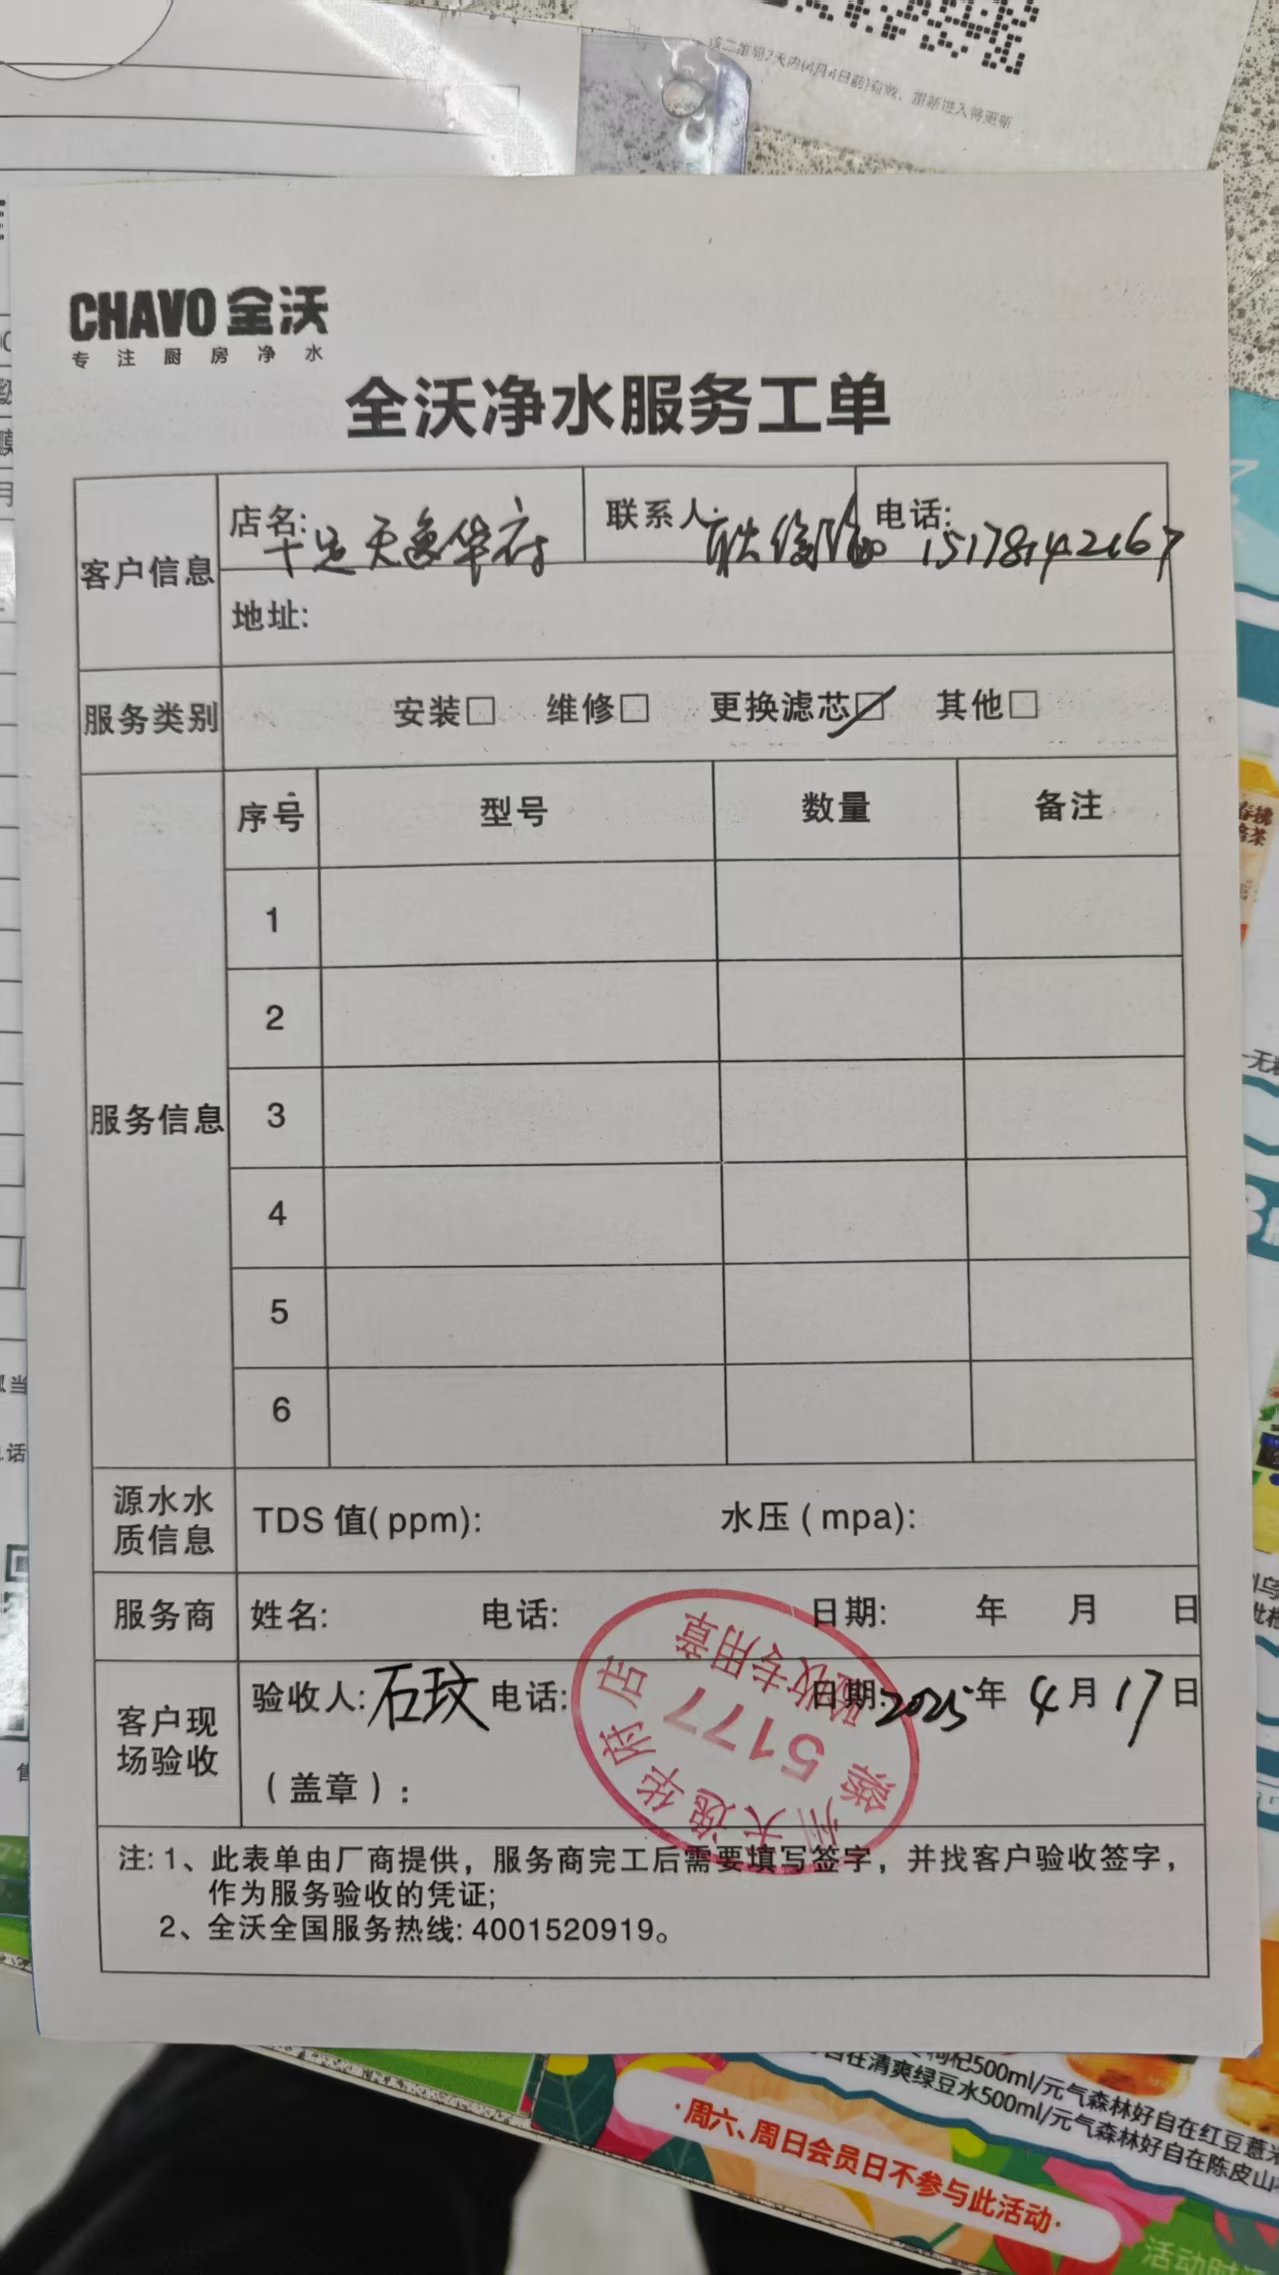 该二维码7天内(4月4日前)有效，重新进入将更新
CHAVO 全沃
专注厨房净水
全沃净水服务工单
客户信息
店名: 十足天逸华府
联系人:
电话: 15178142167
地址:
服务类别
安装□ 维修□ 更换滤芯☑ 其他□
服务信息
序号 型号 数量 备注
1
2
3
4
5
6
源水水质信息
TDS 值(ppm): 水压(mpa):
服务商
姓名: 电话: 日期: 年 月 日
客户现场验收
验收人: 石玟 电话: 日期: 2025年 4月 17日
(盖章):
州天逸华府店
5177
验收专用章
注: 1、此表单由厂商提供，服务商完工后需要填写签字，并找客户验收签字，
作为服务验收的凭证;
2、全沃全国服务热线: 4001520919。
枸杞500ml/元气森林好自在红豆薏米
自在清爽绿豆水500ml/元气森林好自在陈皮山
·周六、周日会员日不参与此活动·